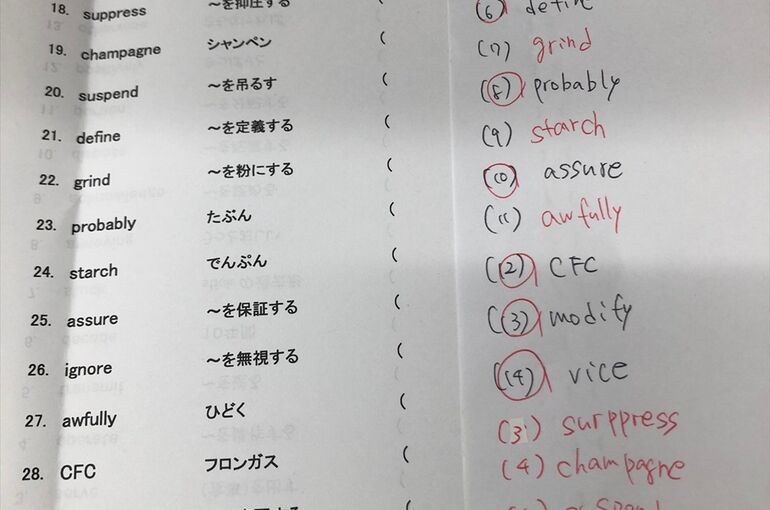 18. suppress ～を抑圧する
19. champagne シャンペン (
20. suspend ～を吊るす (
21. define ～を定義する (
22. grind ～を粉にする (
23. probably たぶん (
24. starch でんぷん (
25. assure ～を保証する (
26. ignore ～を無視する (
27. awfully ひどく (
28. CFC フロンガス (
(6) define
(7) grind
(8) probably
(9) starch
(10) assure
(11) awfully
(12) CFC
(13) modify
(14) vice
(3) surppress
(4) champagne